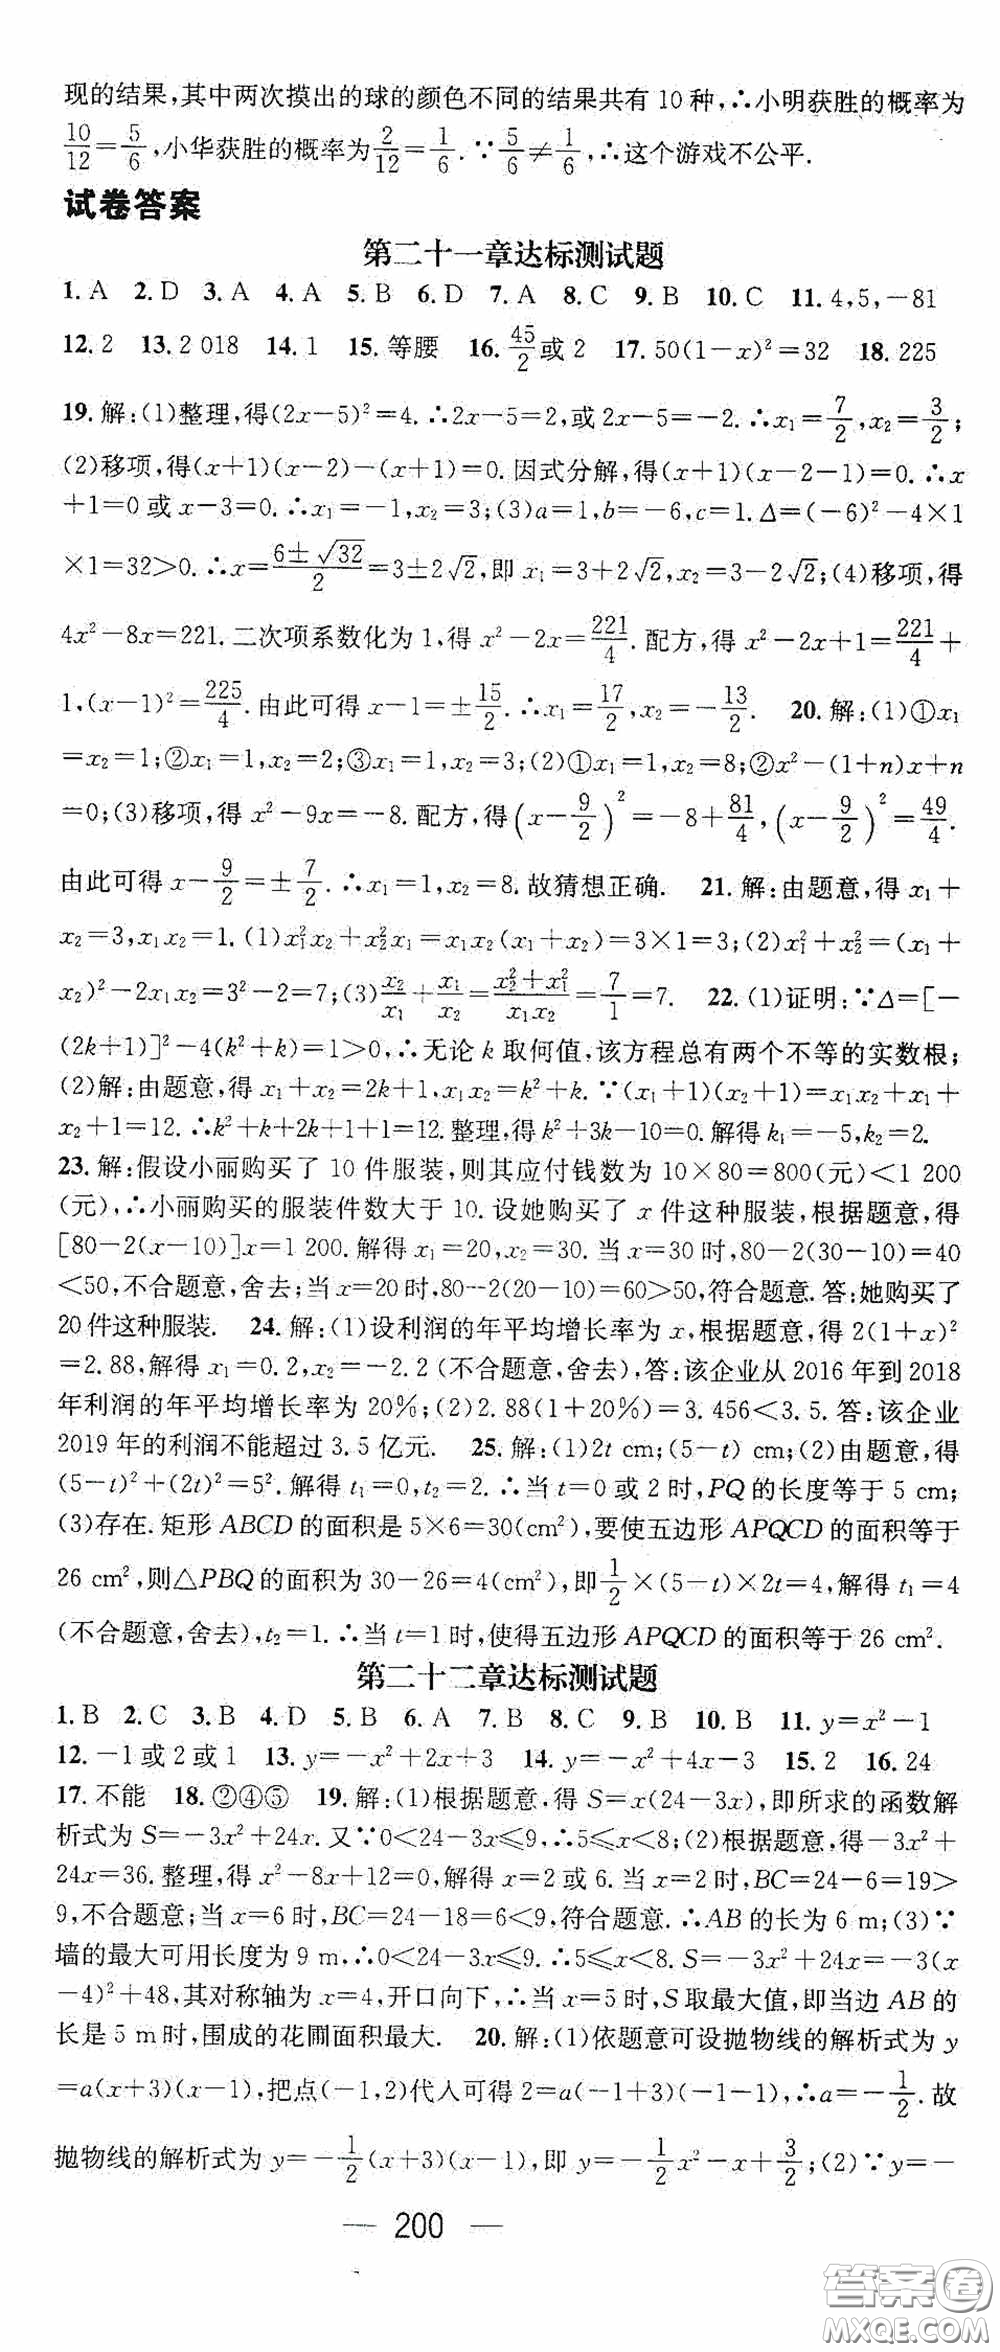 现的结果,其中两次摸出的球的颜色不同的结果共有 10 种,∴小明获胜的概率为
10/12=5/6,小华获胜的概率为2/12=1/6.∵5/6≠1/6,∴这个游戏不公平.
试卷答案
第二十一章达标测试题
1. A 2. D 3. A 4. A 5. B 6. D 7. A 8. C 9. B 10. C 11. 4,5,-81
12. 2 13. 2 018 14. 1 15. 等腰 16. 45/2或 2 17. 50(1-x)²=32 18. 225
19. 解:(1)整理,得(2x-5)²=4.∴2x-5=2,或 2x-5=-2.∴x₁=7/2,x₂=3/2;
(2)移项,得(x+1)(x-2)-(x+1)=0. 因式分解,得(x+1)(x-2-1)=0.∴x
+1=0 或 x-3=0.∴x₁=-1,x₂=3;(3)a=1,b=-6,c=1. Δ=(-6)²-4×1
×1=32>0.∴x=(6±√32)/2=3±2√2,即 x₁=3+2√2,x₂=3-2√2;(4)移项,得
4x²-8x=221. 二次项系数化为 1,得 x²-2x=221/4. 配方,得 x²-2x+1=221/4+
1,(x-1)²=225/4. 由此可得 x-1=±15/2.∴x₁=17/2,x₂=-13/2. 20. 解:(1)①x₁
=x₂=1;②x₁=1,x₂=2;③x₁=1,x₂=3;(2)①x₁=1,x₂=8;②x²-(1+n)x+n
=0;(3)移项,得 x²-9x=-8. 配方,得(x-9/2)²=-8+81/4,(x-9/2)²=49/4.
由此可得 x-9/2=±7/2.∴x₁=1,x₂=8. 故猜想正确. 21. 解:由题意,得 x₁+
x₂=3,x₁x₂=1. (1)x₁²x₂+x₂²x₁=x₁x₂(x₁+x₂)=3×1=3;(2)x₁²+x₂²=(x₁+
x₂)²-2x₁x₂=3²-2=7;(3)x₂/x₁+x₁/x₂=(x₂²+x₁²)/(x₁x₂)=7/1=7. 22. (1)证明:∵Δ=[-
(2k+1)]²-4(k²+k)=1>0,∴无论 k 取何值,该方程总有两个不等的实数根;
(2)解:由题意,得 x₁+x₂=2k+1,x₁x₂=k²+k.∵(x₁+1)(x₂+1)=x₁x₂+x₁+
x₂+1=12.∴k²+k+2k+1+1=12. 整理,得 k²+3k-10=0. 解得 k₁=-5,k₂=2.
23. 解:假设小丽购买了 10 件服装,则其应付钱数为 10×80=800(元)<1 200
(元),∴小丽购买的服装件数大于 10. 设她购买了 x 件这种服装,根据题意,得
[80-2(x-10)]x=1 200. 解得 x₁=20,x₂=30. 当 x=30 时,80-2(30-10)=40
<50,不合题意,舍去;当 x=20 时,80-2(20-10)=60>50,符合题意. 答:她购买了
20 件这种服装. 24. 解:(1)设利润的年平均增长率为 x,根据题意,得 2(1+x)²
=2.88,解得 x₁=0.2,x₂=-2.2 (不合题意,舍去),答:该企业从 2016 年到 2018
年利润的年平均增长率为 20%;(2)2.88(1+20%)=3.456<3.5. 答:该企业
2019 年的利润不能超过 3.5 亿元. 25. 解:(1)2t cm;(5-t) cm;(2)由题意,得
(5-t)²+(2t)²=5². 解得 t₁=0,t₂=2.∴当 t=0 或 2 时,PQ 的长度等于 5 cm;
(3)存在. 矩形 ABCD 的面积是 5×6=30(cm²),要使五边形 APQCD 的面积等于
26 cm²,则△PBQ 的面积为 30-26=4(cm²),即1/2×(5-t)×2t=4,解得 t₁=4
(不合题意,舍去),t₂=1.∴当 t=1 时,使得五边形 APQCD 的面积等于 26 cm².
第二十二章达标测试题
1. B 2. C 3. B 4. D 5. B 6. A 7. B 8. C 9. B 10. B 11. y=x²-1
12. -1 或 2 或 1 13. y=-x²+2x+3 14. y=-x²+4x-3 15. 2 16. 24
17. 不能 18. ②④⑤ 19. 解:(1)根据题意,得 S=x(24-3x),即所求的函数解
析式为 S=-3x²+24x. 又∵0<24-3x≤9,∴5≤x<8;(2)根据题意,得-3x²+
24x=36. 整理,得 x²-8x+12=0,解得 x=2 或 6. 当 x=2 时,BC=24-6=19>
9,不合题意;当 x=6 时,BC=24-18=6<9,符合题意.∴AB 的长为 6 m;(3)∵
墙的最大可用长度为 9 m,∴0<24-3x≤9.∴5≤x<8. S=-3x²+24x=-3(x
-4)²+48,其对称轴为 x=4,开口向下,∴当 x=5 时,S 取最大值,即当边 AB 的
长是 5 m 时,围成的花圃面积最大. 20. 解:(1)依题意可设抛物线的解析式为 y
=a(x+3)(x-1),把点(-1,2)代入可得 2=a(-1+3)(-1-1),∴a=-1/2. 故
抛物线的解析式为 y=-1/2(x+3)(x-1),即 y=-1/2x²-x+3/2;(2)∵y=-
— 200 —
答案卷
MXQE.COM